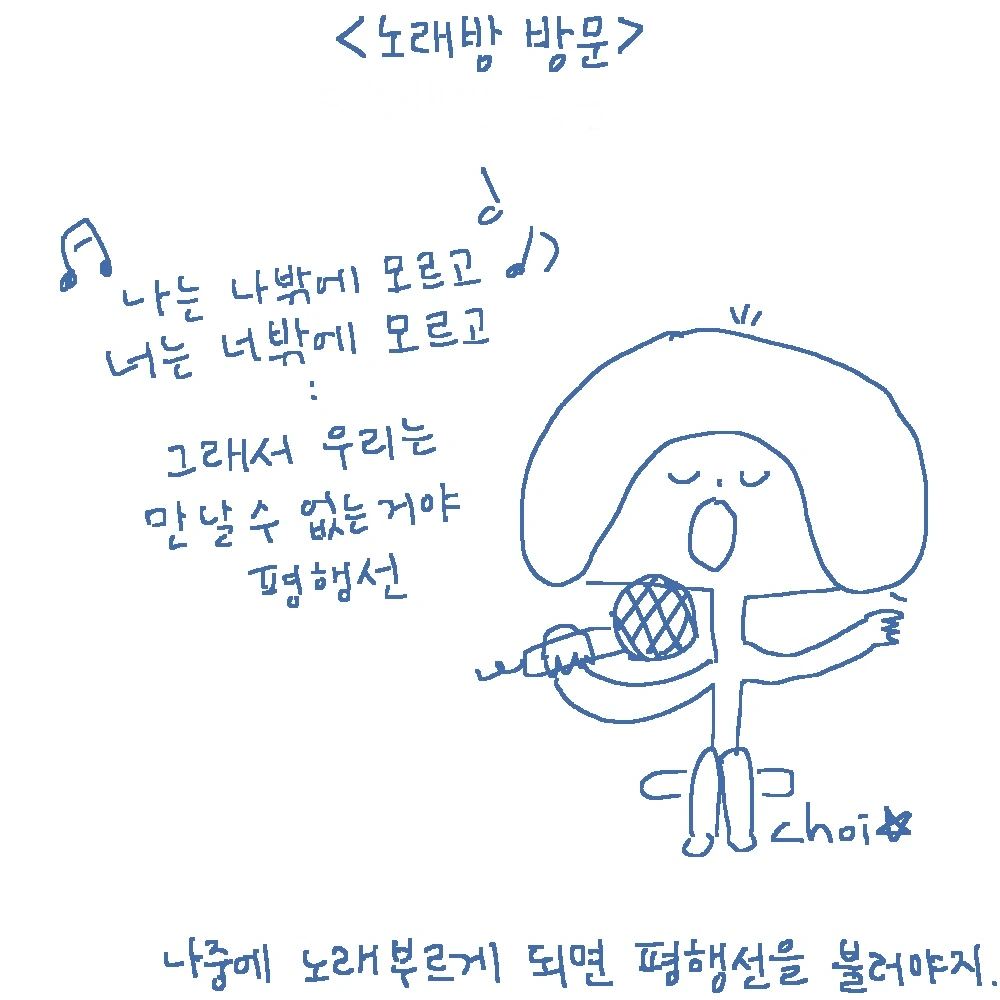 <노래방 방문>
나는 나밖에 모르고
너는 너밖에 모르고
:
그래서 우리는
만날수 없는거야
평행선
choi☆
나중에 노래부르게 되면 평행선을 불러야지.